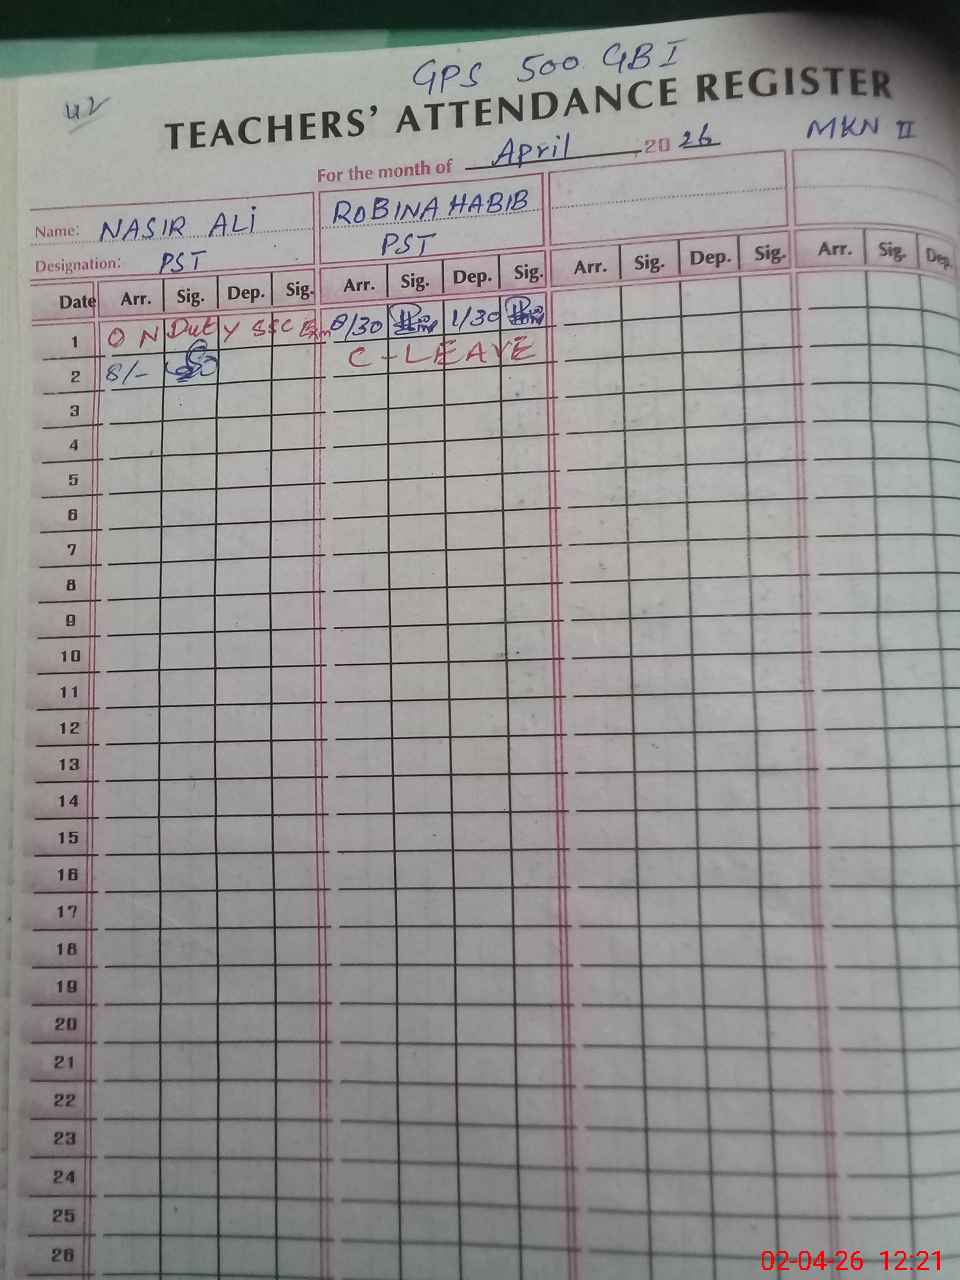 GPS 500 GBI
42
TEACHERS' ATTENDANCE REGISTER
For the month of April 2026 MKN II
Name: NASIR ALI ROBINA HABIB
Designation: PST PST
Date Arr. Sig. Dep. Sig. Arr. Sig. Dep. Sig. Arr. Sig. Dep. Sig. Arr. Sig. Dep.
1 ON Duty SSC Exm 8/30 1/30
2 8/- C-LEAVE
3
4
5
6
7
8
9
10
11
12
13
14
15
16
17
18
19
20
21
22
23
24
25
26
02-04-26 12:21